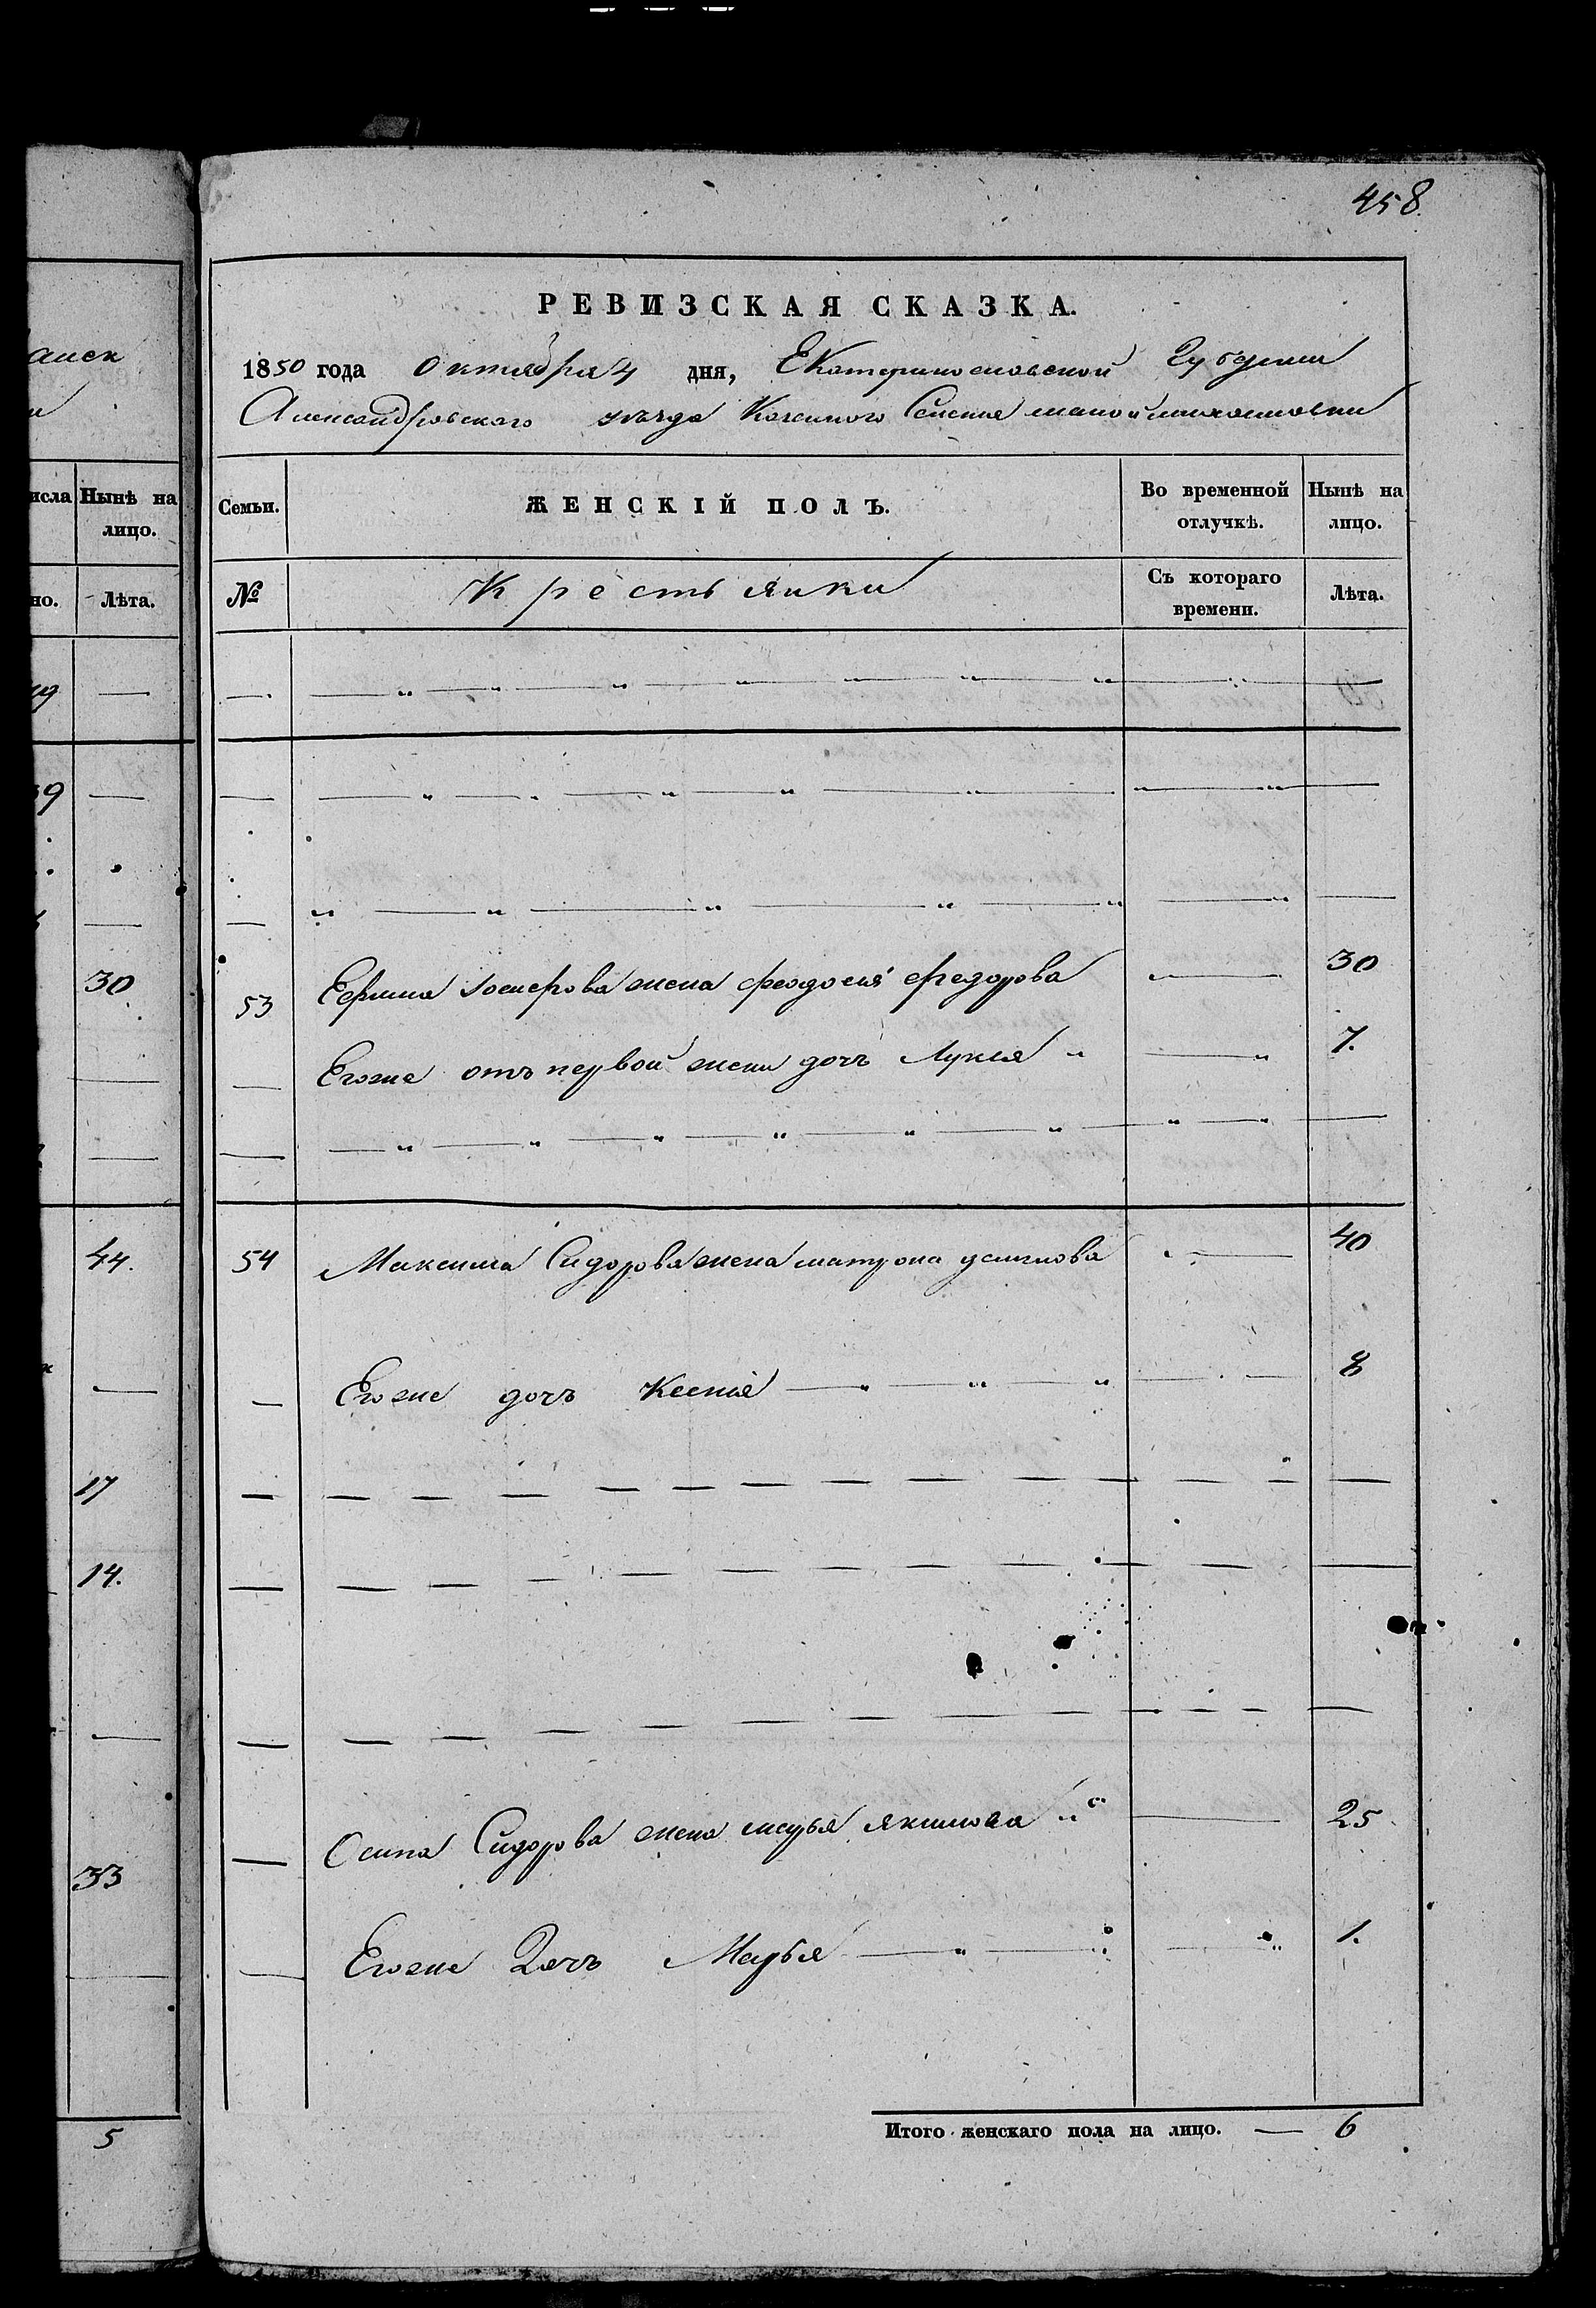 458.
РЕВИЗСКАЯ СКАЗКА.
1850 года Октября 4 дня, Екатеринославской Губернии
Александровского уезда Казенного Селения малой михайловки
Семьи. ЖЕНСКІЙ ПОЛЪ. Во временной отлучкѣ. Нынѣ на лицо.
№ Крестьянки Съ котораго времени. Лѣта.
53 Ефима жена феодосія федорова 30
Егоже отъ первой жены дочъ Лукия 7.
54 Максима Сидорова жена матрона 40
Егоже дочъ Ксенія 8
Осипа Сидорова жена марья якимова 25
Егоже Дочъ Марья 1.
Итого женскаго пола на лицо. — 6
Нынѣ на лицо.
Лѣта.
30
44.
17
14.
33
5